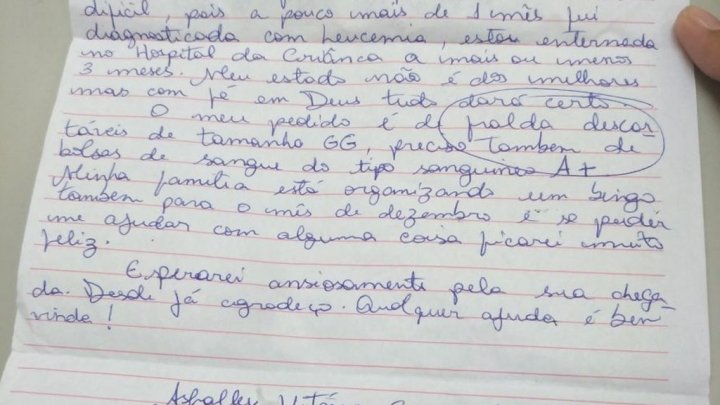 difícil, pois a pouco mais de 1 mês fui
diagnosticada com Leucemia, estou internada
no Hospital da Criança a mais ou menos
3 meses. Meu estado não é dos melhores
mas com fé em Deus tudo dará certo.
O meu pedido é de fralda descar-
táveis de tamanho GG, preciso também de
bolsas de sangue do tipo sanguíneo A+
Minha família está organizando um bingo
também para o mês de dezembro e se puder
me ajudar com alguma coisa ficarei muito
feliz.
Esperarei ansiosamente pela sua chega-
da. Desde já agradeço. Qualquer ajuda é bem
vinda!